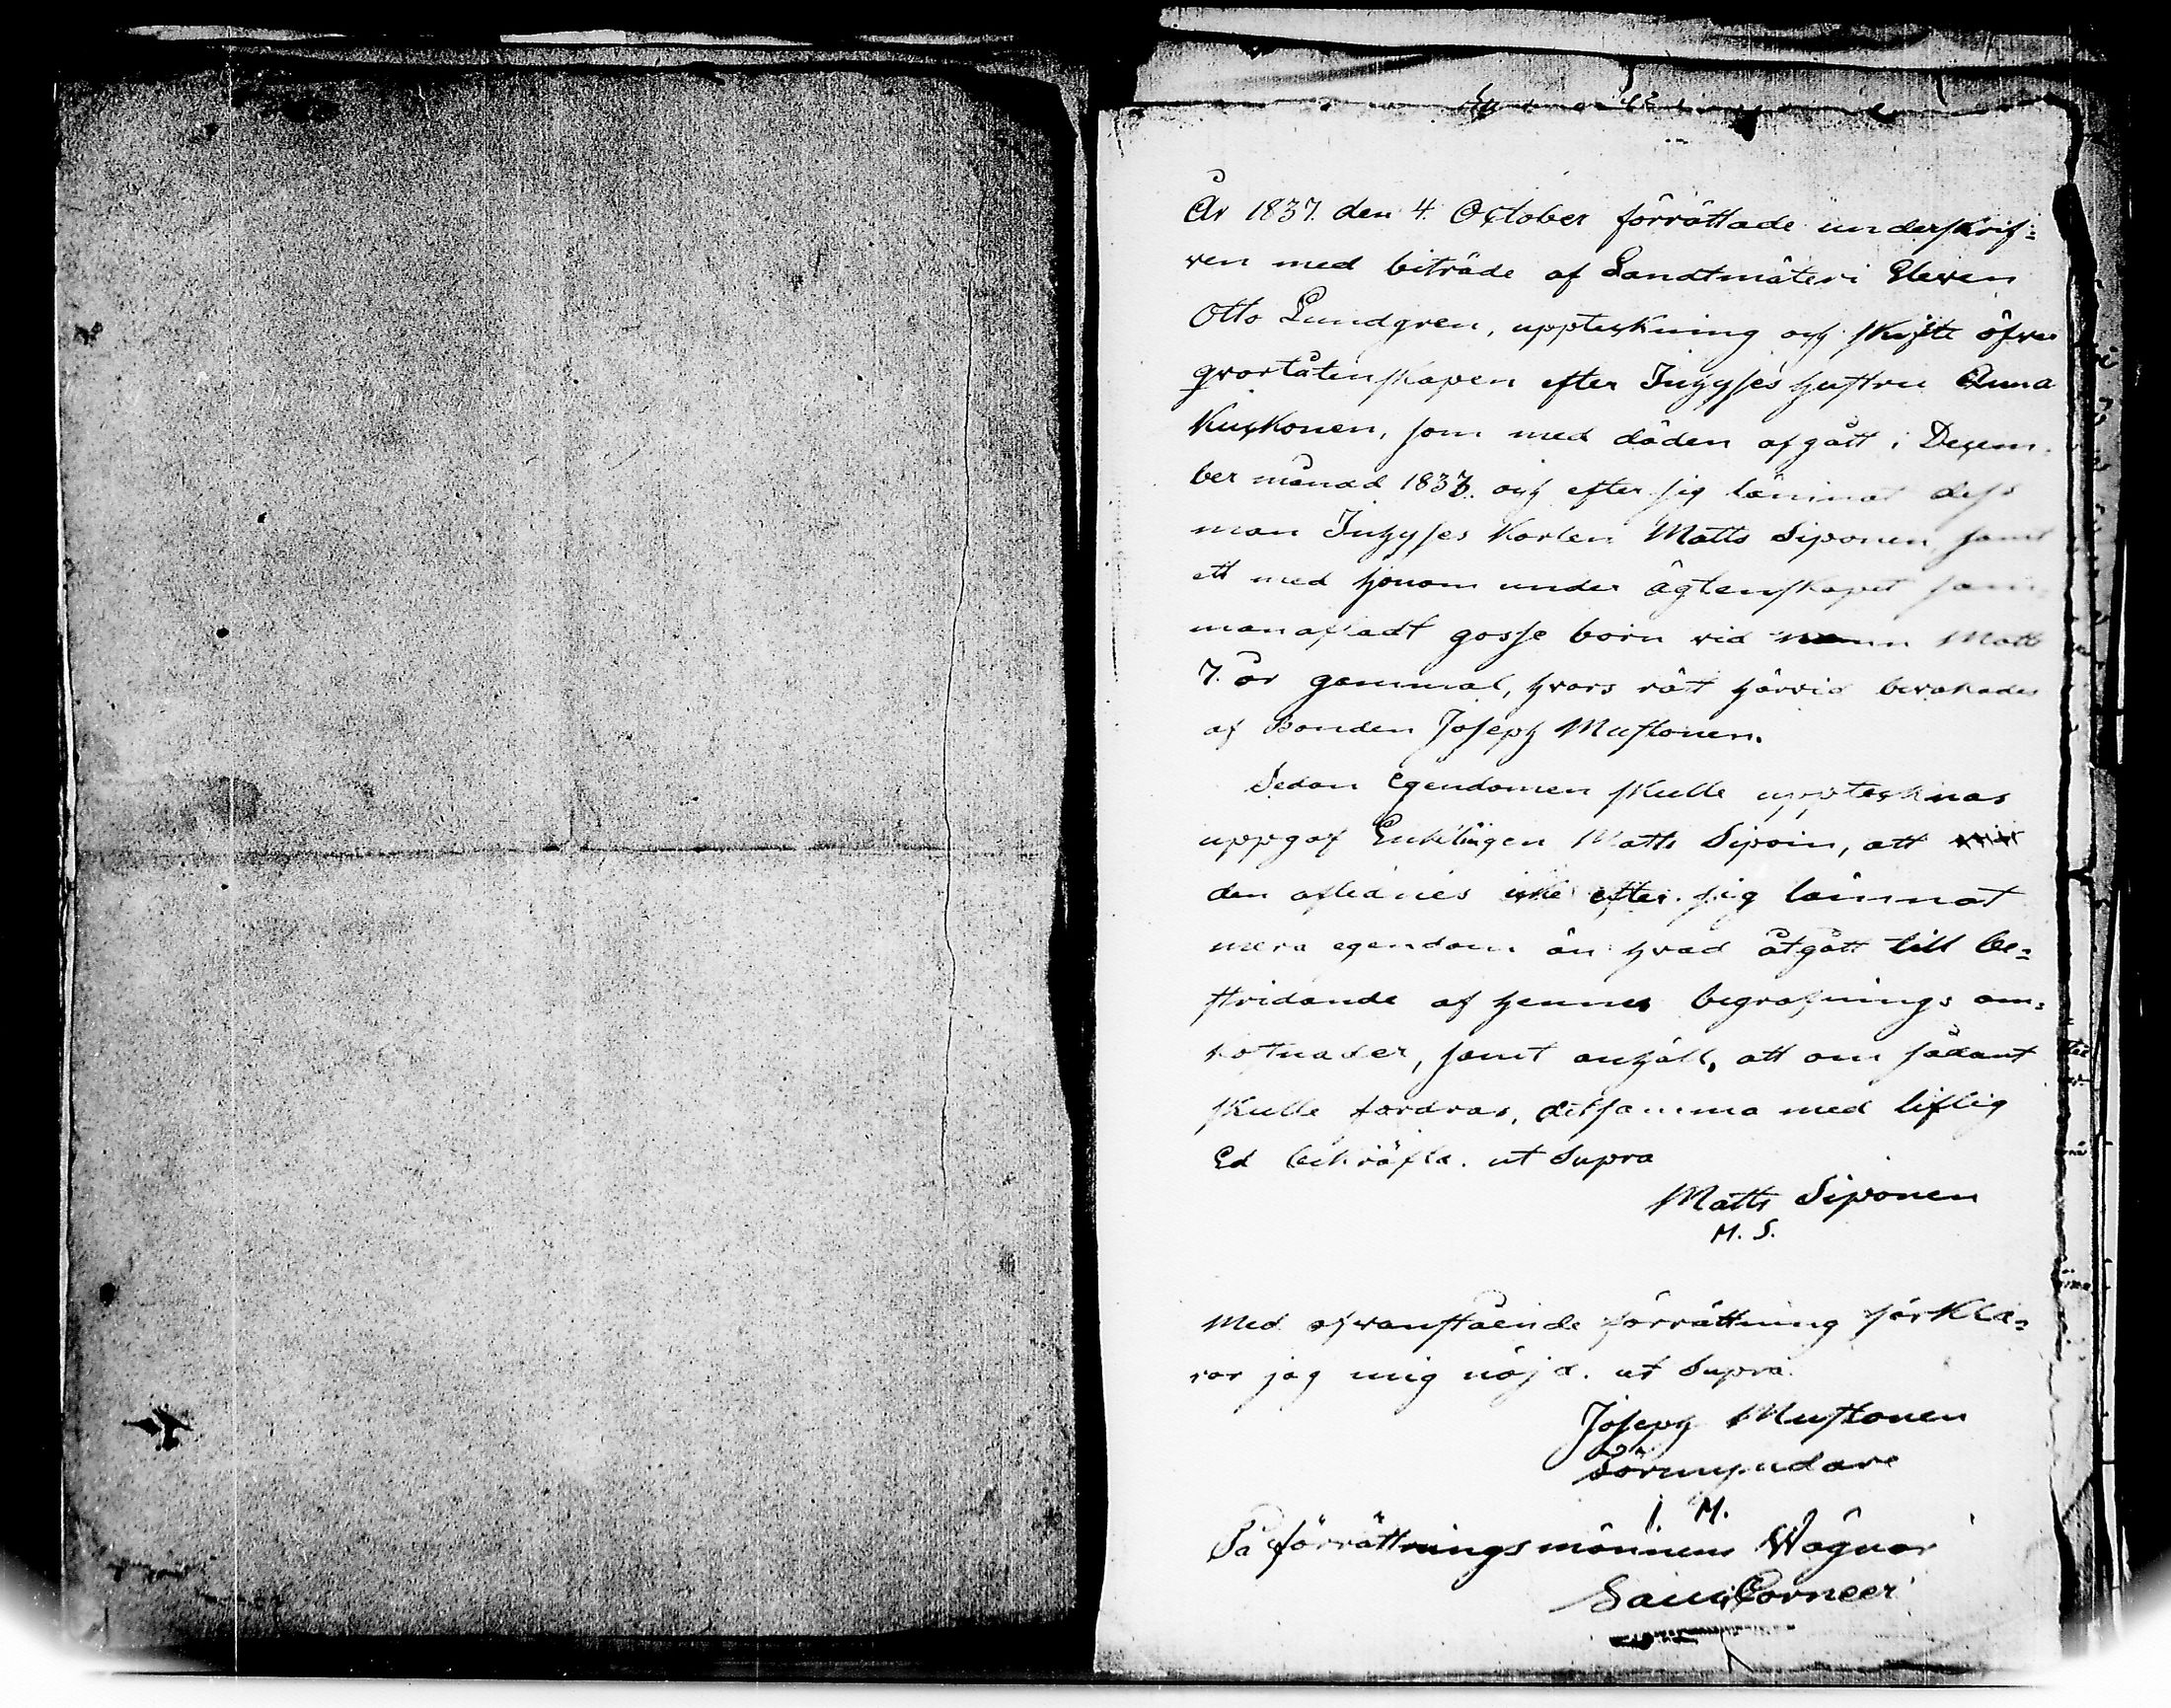 År 1837. den 4. October förrättade underskrif=
ven med biträde af Landtmäteri Eleven
Otto Lundgren, uppteckning och skifte öfver
qvarlåtenskapen efter Inhyses hustru Anna
Kuckonen, som med döden afgått i Decem-
ber månad 1833. och efter sig lämnat dess
man Inhyses Karlen Matts Siponen, samt
ett med honom under ägtenskapet sam-
manafladt gosse barn vid namn Matts
7. år gammal, hvars rätt härvid bevakades
af Bonden Joseph Mustonen.
Sedan egendomen skulle upptecknas
uppgaf Enklingen Matts Sipoin, att
den aflednes icke efter sig lämnat
mera egendom än hvad åtgått till be=
stridande af hennes begrafnings om=
kostnader, samt anhåll, att om sådant
skulle fordras, detsamma med liflig
Ed bekräfta. ut Supra
Matts Siponen
M. S.
Med ofvanstående förrättning förkla=
rar jag mig nöjd. ut Supra.
Joseph Mustonen
Förmyndare
J. M.
På förrättningsmännens Wägnar
Corneer